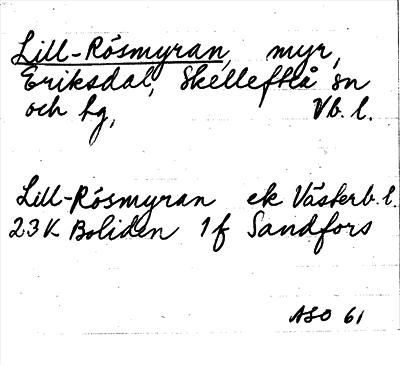 Lill-Rósmyran, myr,
Eriksdal, Skellefteå sn
och tg, Vb. l.
Lill-Rósmyran ek Västerb. l.
23K Boliden 1f Sandfors
ASO 61